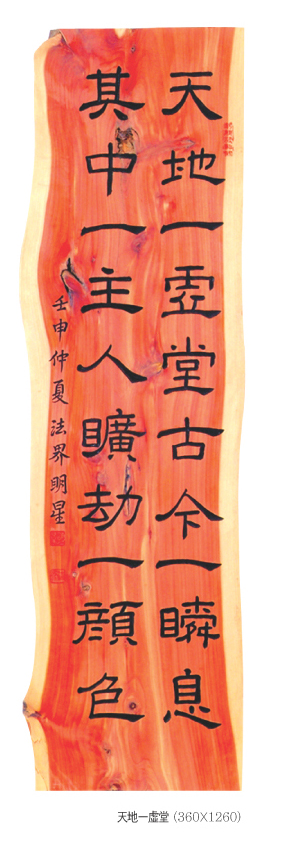 天地一虛堂古今一瞬息
其中一主人曠劫一顔色
壬申仲夏 法界明星
天地一虛堂 (360X1260)